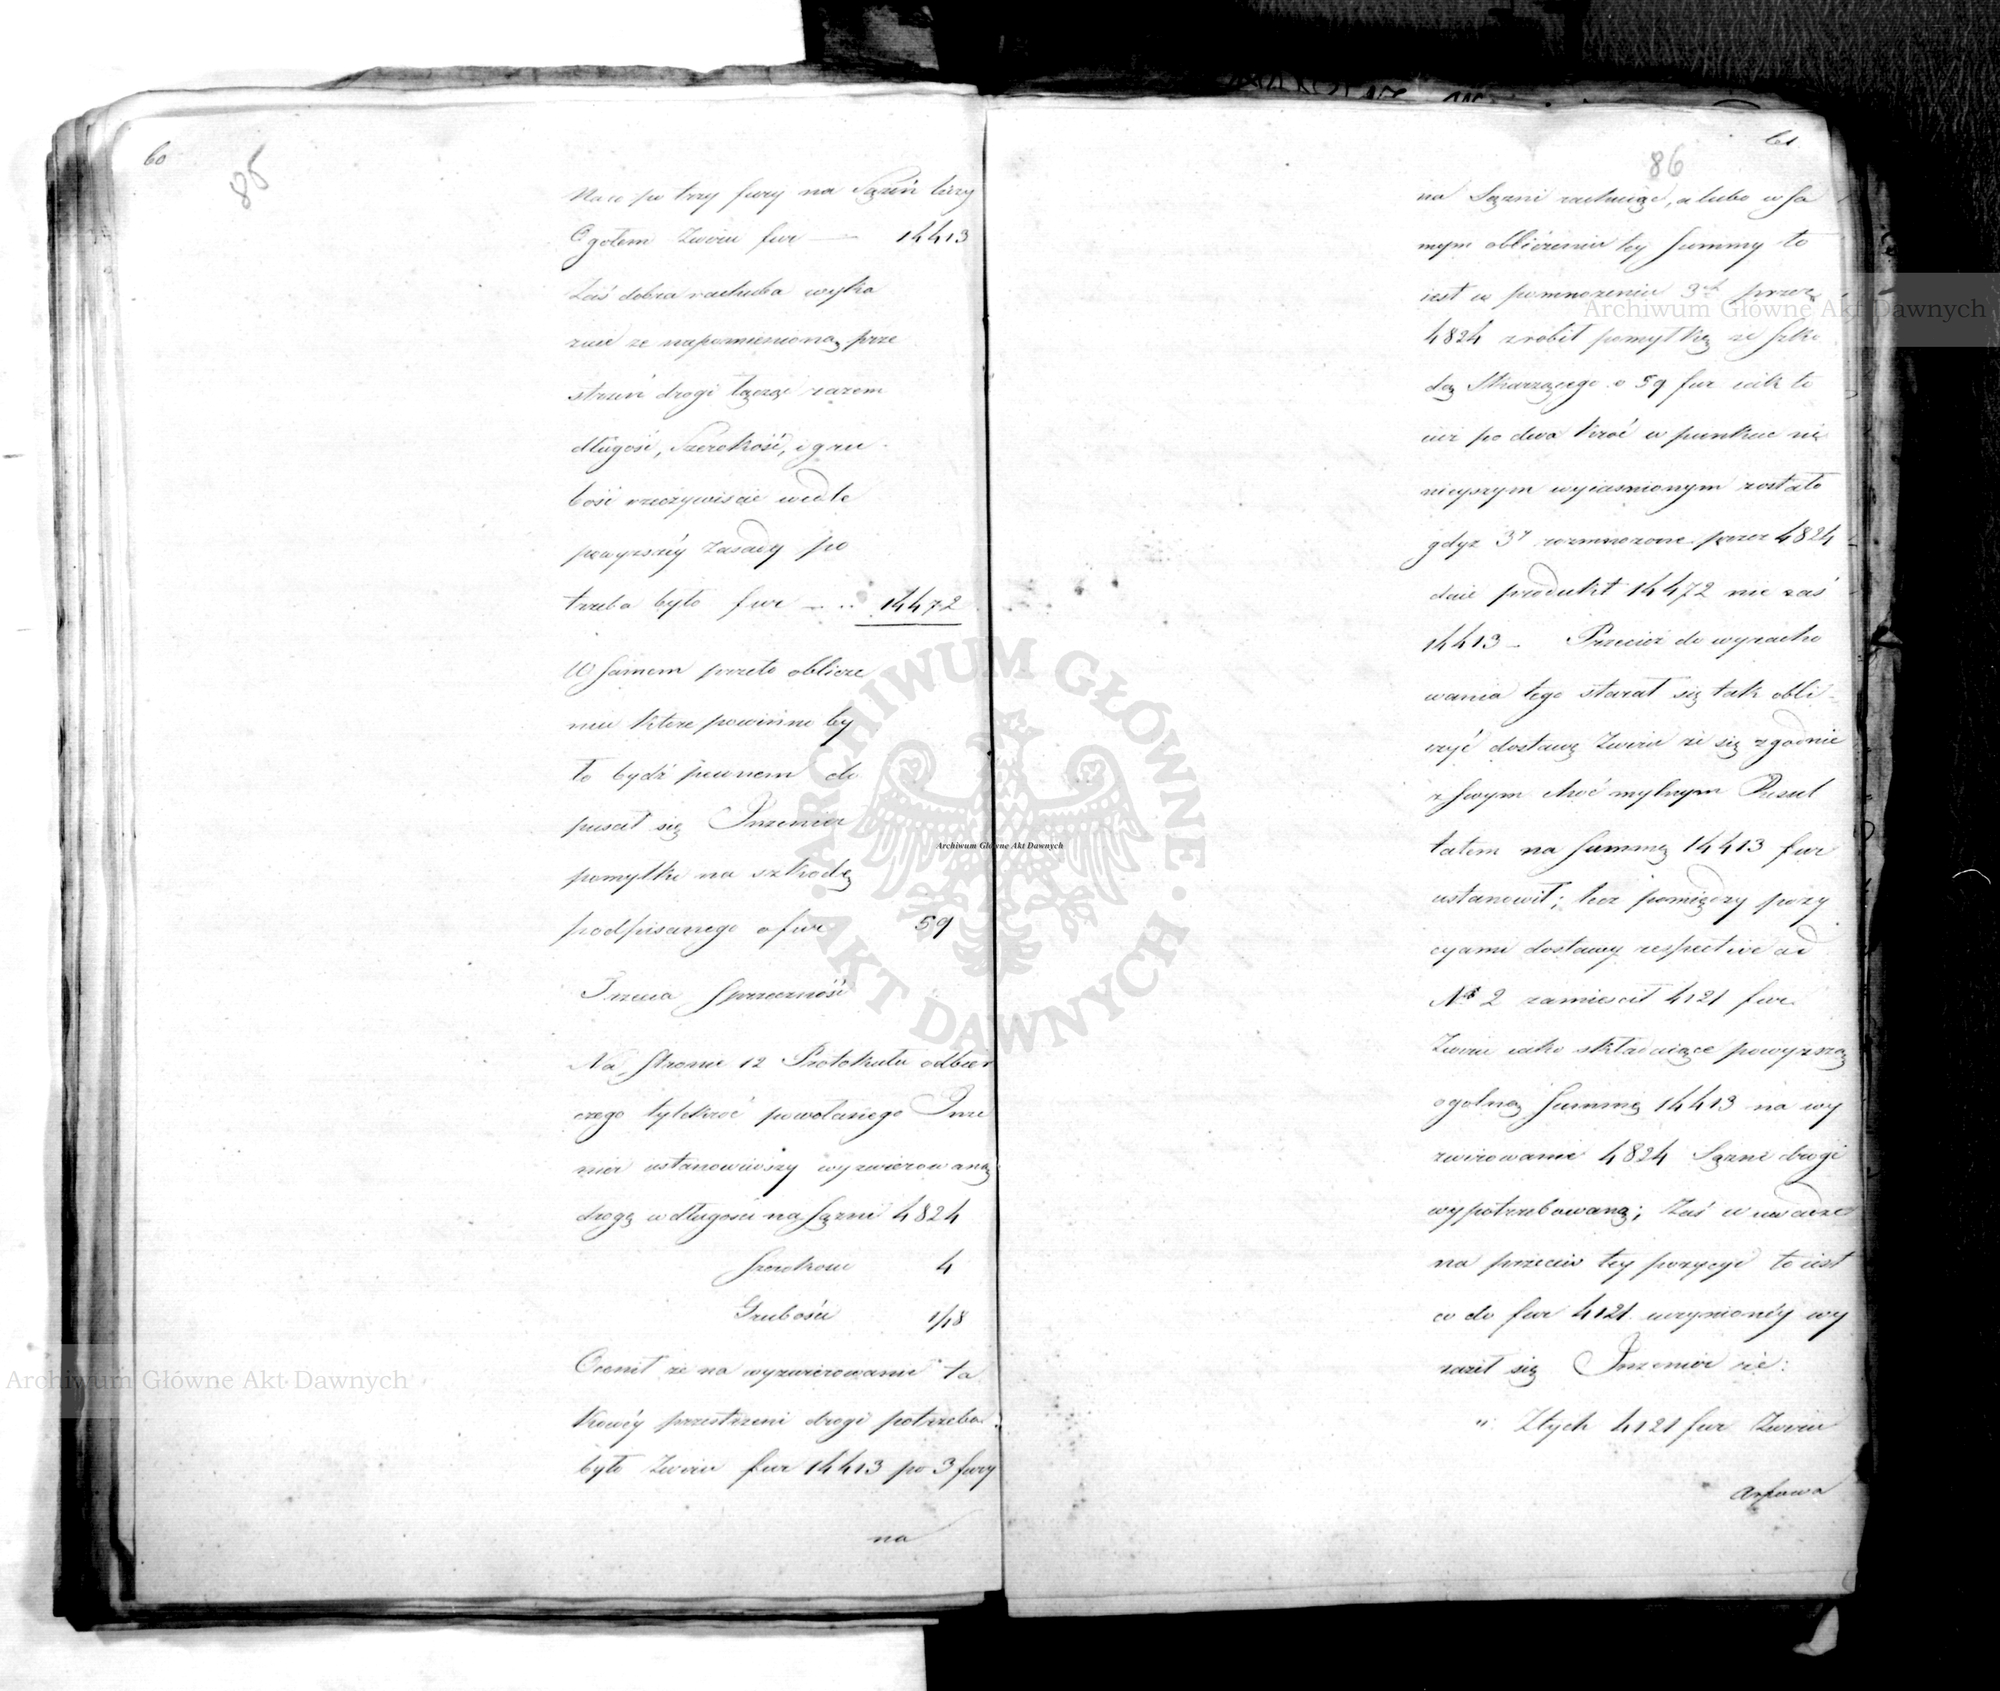 60
85
Na co po trzy fury na Sążeń liczy
Ogołem Zwiru fur — 14413
Zaś dobra rachuba wyka
zuie że napomnioną prze
strzeń drogi łącząc razem
długość, Szerokość, i gru
bość rzeczywiście wedle
powyższéy Zasady po
trzeba było fur — .. 14472
W Samem przeto oblicze
niu które powinno by
ło bydź pewnem do
puścił się Inzenier
pomyłki na szkodę
podpisanego o fur 59
Trzecia Sprzeczność
Na Stronie 12 Protokułu odbior
czego tylekroć powołanego Inze
nier ustanowiwszy wyzwirowaną
drogę w długości na Sążni 4824
Szerokości 4
Grubości 1/18
Ocenił że na wyzwirowanie ta
kowéy przestrzeni drogi potrzeba
było Zwiru fur 14413 po 3 fury
na
61
86
na Sążni rachuiąc, a lubo w Sa
mym obliczeniu tey Summy to
iest w pomnożeniu 3ch przez
4824 zrobił pomyłkę ze Szko
dą Skarzącego o 59 fur iak to
iuż po dwa kroć w punkcie ni
nieyszym wyiasnionym zostało
gdyż 3y rozmnożone przez 4824
daie produkt 14472 nie zaś
14413 — Przecież do wyracho
wania tego starał się tak obli-
czyć dostawę Zwiru że się zgodnie
z Swym choć mylnym Rezul
tatem na Summę 14413 fur
ustanowił; lecz pomiędzy pozy
cyami dostawy respective ad
No 2 zamieścił 4121 fur
Zwiru iako składaiące powyższą
ogolną Summę 14413 na wy
zwirowanie 4824 Sążni drogi
wypotrzebowaną; Zaś w uwadze
na przeciw tey pozycyi to iest
co do fur 4121 uczynionéy wy
raził się Inzenier że:
" Z tych 4121 fur Zwiru
Archiwum Główne Akt Dawnych
Archiwum Główne Akt Dawnych
Archiwum Główne Akt Dawnych
ARCHIWUM GŁÓWNE · AKT DAWNYCH ·